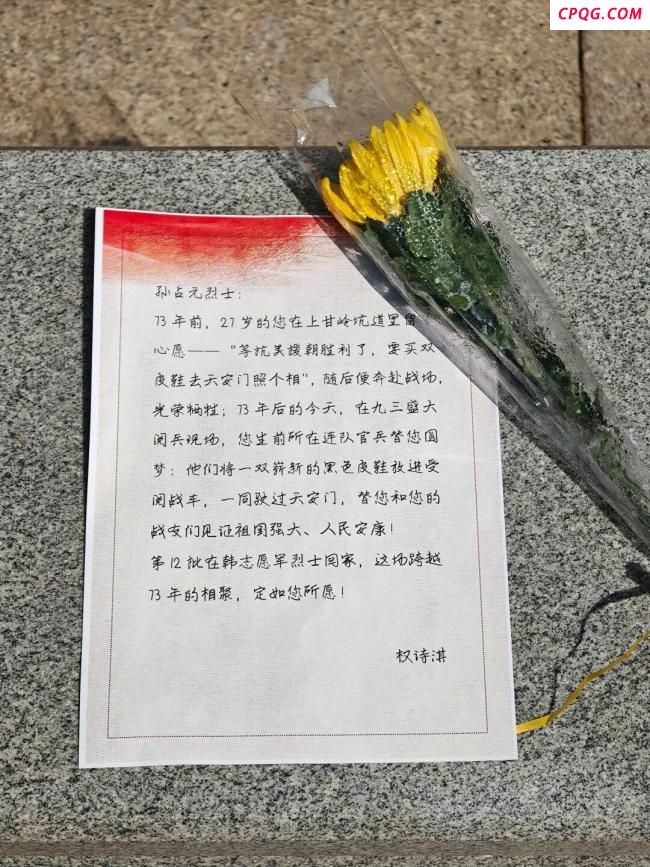 CPQG.COM
孙占元烈士：
73年前，27岁的您在上甘岭坑道里留
心愿——“等抗美援朝胜利了，要买双
皮鞋去天安门照个相”，随后便奔赴战场，
光荣牺牲；73年后的今天，在九三盛大
阅兵现场，您生前所在连队官兵替您圆
梦：他们将一双崭新的黑色皮鞋放进受
阅战车，一同驶过天安门，替您和您的
战友们见证祖国强大、人民安康！
第12批在韩志愿军烈士回家，这场跨越
73年的相聚，定如您所愿！
权诗淇